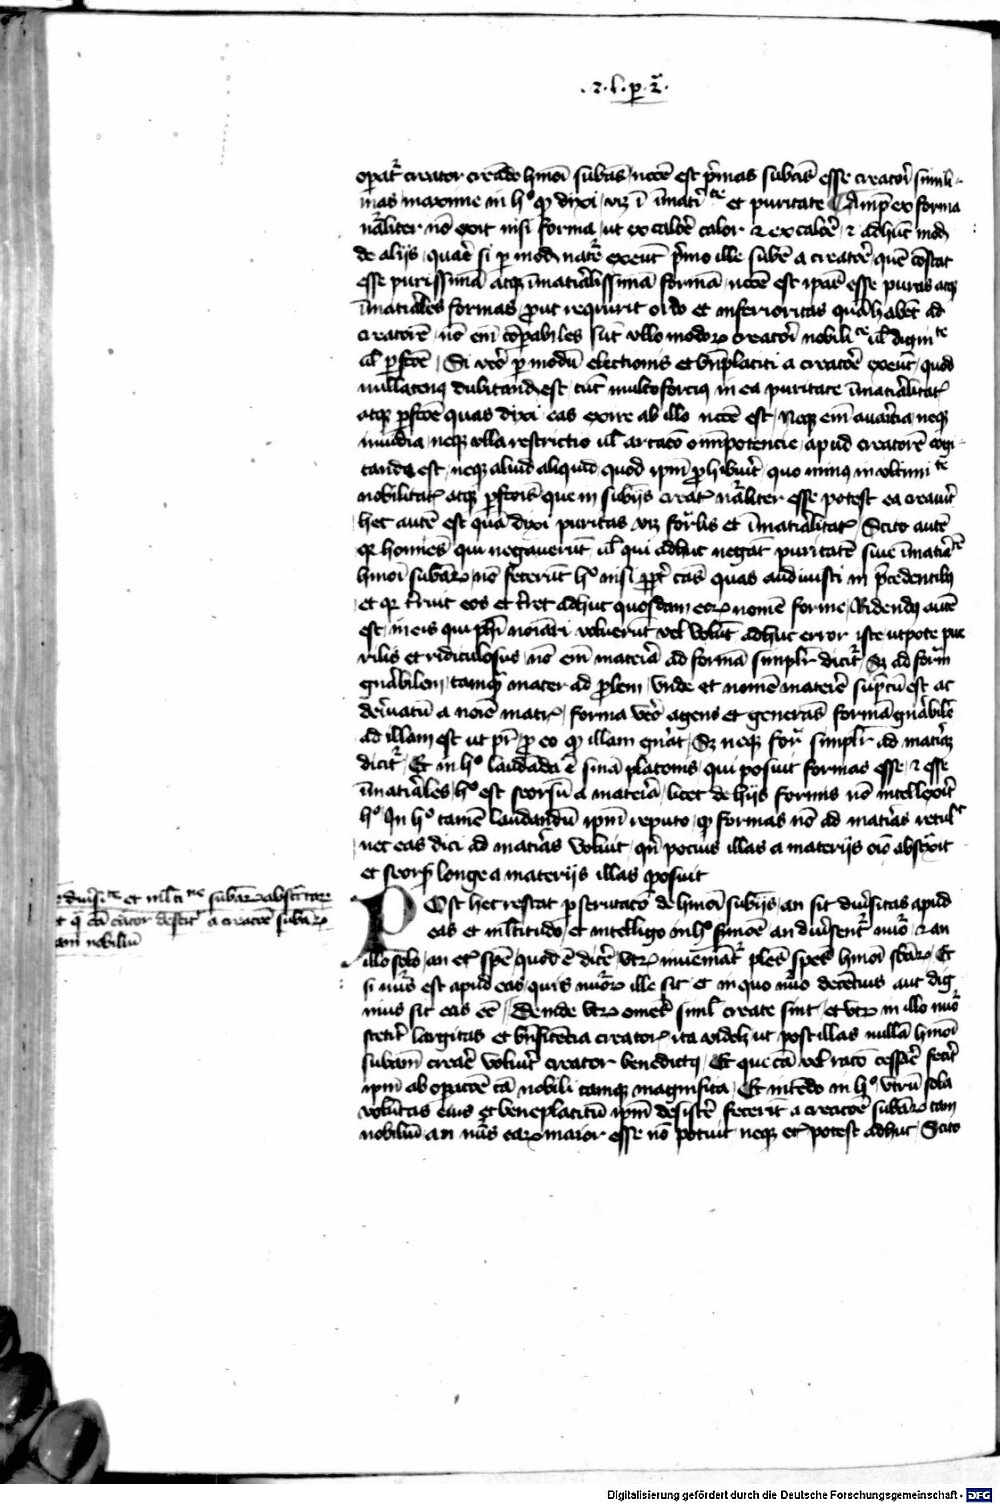 .2.l.p.2.
operatur creator creando hmoi subas necce est primas subas esse creatori simili
mas maxime in hoc quod dixi viz in immaterialitate et puritate Amplius ex forma
naturaliter non exit nisi forma ut ex calore calor et ex calore et adhuc modus
de aliis quare si per modum nature exeunt primo ille substantie a creatore quem constat
esse purissimam atque immaterialissimam formam necce est ipsas esse puras atque
immateriales formas prout requirit ordo et inferioritas quam habent ad
creatorem non enim comparabiles sunt ullo modorum creatori nobilitate vel dignitate
vel perfectione Si vero per modum electionis et beneplaciti a creatore exeunt quod
nullatenus dubitandum est tunc multo forcius in ea puritate immaterialitate
atque perfectione quas dixi eas exire ab illo necce est Neque enim avaricia neque
invidia neque ulla restrictio vel artacio omnipotencie apud creatorem cogi
tanda est neque aliud aliquid quod ipsum prohibuerit quo minus in ultimitate
nobilitatis atque perfectionis que in substantiis creatis naturaliter esse potest ea creaverit
hec autem est quam dixi puritas viz formalis et immaterialitatis Scito autem
quod homines qui negaverunt vel qui adhuc negant puritatem sive immaterialitatem
hmoi substantiarum non fecerunt hoc nisi propter causas quas audivisti in precedentibus
et quod terruit eos et terret adhuc quosdam eorum nomen forme Ridendus autem
est in eis qui philosophi nominari voluerunt vel volunt adhuc error iste utpote pue
rilis et ridiculosus non enim materia ad formam simpliciter dicitur Sed ad formam
generabilem tamquam mater ad prolem Unde et nomen materie sumptum est ac
derivatum a nomine matris forma vero agens et generans formam generabilem
ad illam est ut pater pro eo quod illam generat Sed neque forma simpliciter ad materiam
dicitur Et in hoc laudanda est sententia platonis qui posuit formas esse et esse
immateriales hoc est seorsum a materia licet de hiis formis non intellexerit
hoc In hoc tamen laudandum ipsum reputo quod formas non ad materias retulit
nec eas dici ad materias voluit quin pocius illas a materiis omnino abstraxit
et seorsum longe a materiis illas posuit
Post hec restat perscrutacio de hmoi substantiis an sit diversitas apud
eas et multitudo et intelligo in hoc sermone an diversentur numero et an
illo solo an etiam specie quod est dicere utrum inveniantur plures species hmoi substantiarum Et
si numerus est apud eas quis numerorum ille sit et in quo numero decencius aut dig
nius sit eas esse Deinde utrum omnes simul create sint et utrum in illo numero
steterit largitas et beneficencia creatoris ita videlicet ut post illas nullam hmoi
substantiam creare voluerit creator benedictus Et que causa vel racio cessare fecerit
ipsum ab operacione tam nobili tamque magnifica Et intendo in hoc utrum sola
voluntas eius et beneplacitum ipsum desistere fecerit a creacione substantiarum tam
nobilium an numerus earum maior esse non potuit neque etiam potest adhuc Scito
diversitate et multitudine substantiarum abstractarum
et que causa creator destitit a creacione substantiarum
tam nobilium
Digitalisierung gefördert durch die Deutsche Forschungsgemeinschaft - DFG